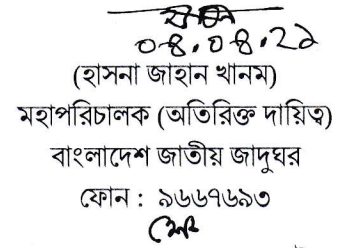 ০৪.০৪.২২
(হাসনা জাহান খানম)
মহাপরিচালক (অতিরিক্ত দায়িত্ব)
বাংলাদেশ জাতীয় জাদুঘর
ফোন : ৯৬৬৭৬৯৩